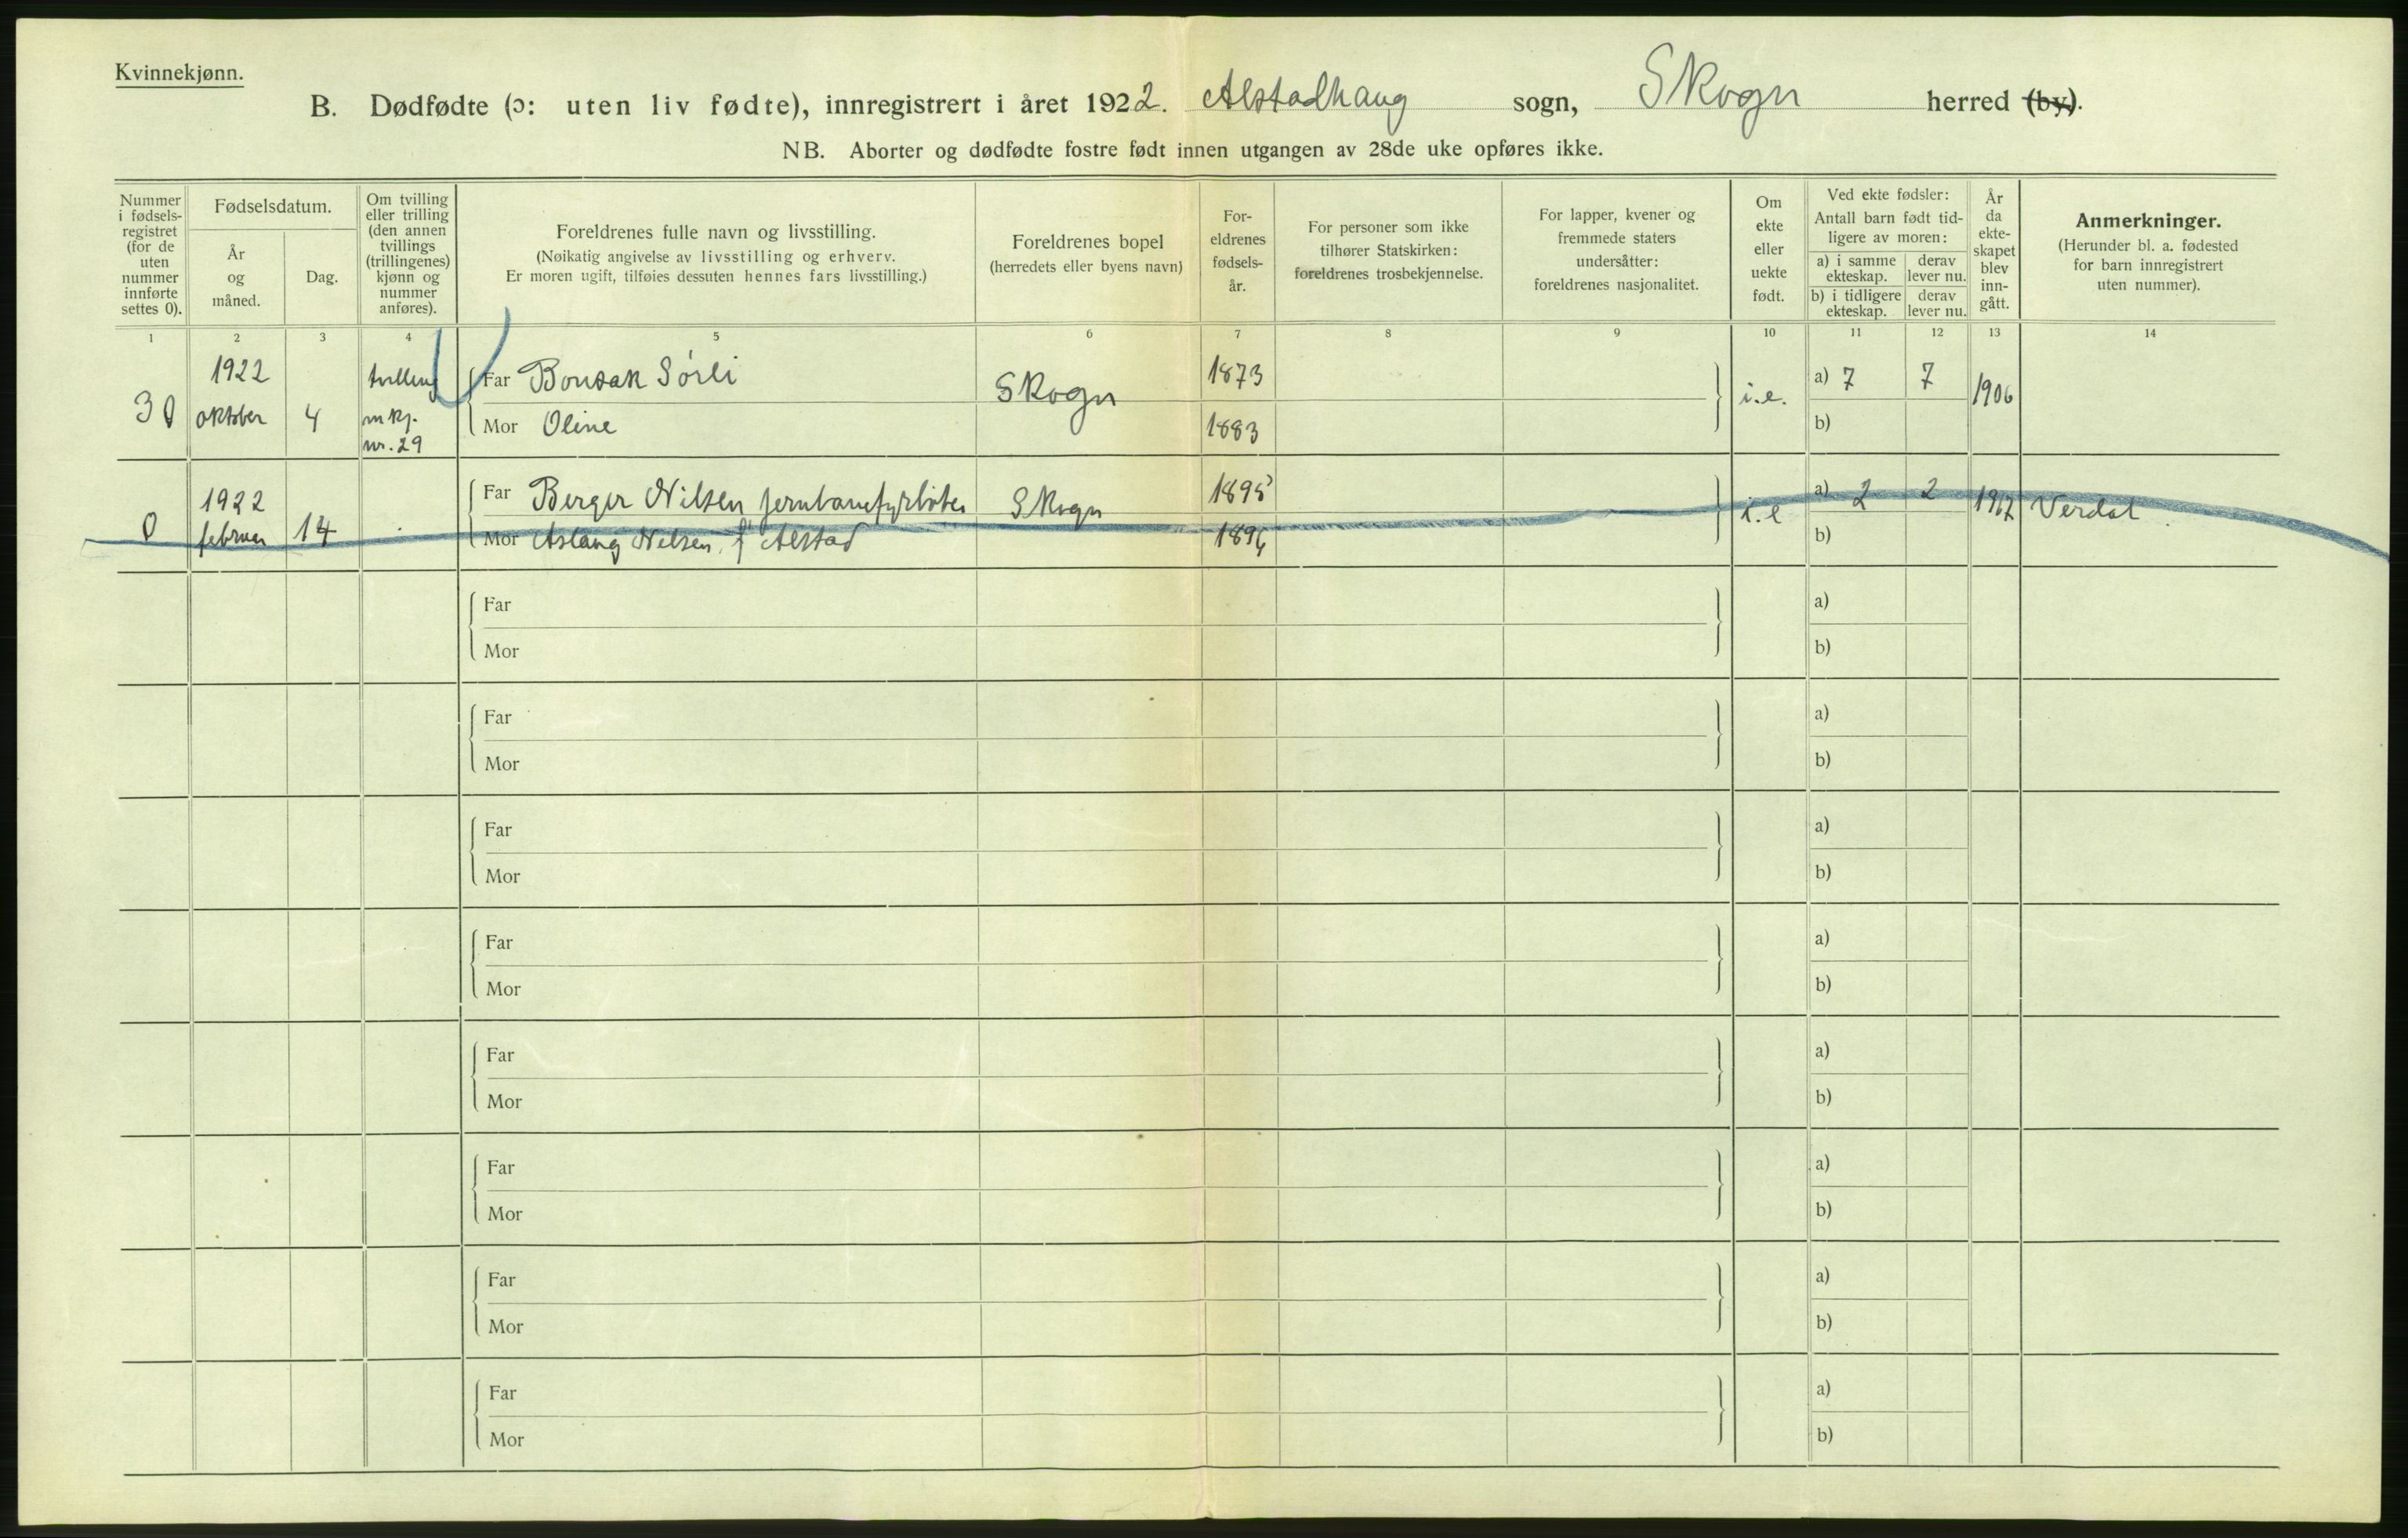 Kvinnekjønn.
B. Dødfødte (ɔ: uten liv fødte), innregistrert i året 1922. Alstadhaug sogn, Skogn herred (by).
NB. Aborter og dødfødte fostre født innen utgangen av 28de uke opføres ikke.
Nummer i fødsels-registret (for de uten nummer innførte settes 0).
Fødselsdatum.
År og måned.
Dag.
Om tvilling eller trilling (den annen tvillings (trillingenes) kjønn og nummer anføres).
Foreldrenes fulle navn og livsstilling.
(Nøikatig angivelse av livsstilling og erhverv.
Er moren ugift, tilføies dessuten hennes fars livsstilling.)
Foreldrenes bopel
(herredets eller byens navn)
For-eldrenes fødsels-år.
For personer som ikke tilhører Statskirken: foreldrenes trosbekjennelse.
For lapper, kvener og fremmede staters undersåtter: foreldrenes nasjonalitet.
Om ekte eller uekte født.
Ved ekte fødsler:
Antall barn født tid-ligere av moren:
a) i samme ekteskap. derav lever nu.
b) i tidligere ekteskap. derav lever nu.
År da ekte-skapet blev inn-gått.
Anmerkninger.
(Herunder bl. a. fødested for barn innregistrert uten nummer).
1 2 3 4 5 6 7 8 9 10 11 12 13 14
30 1922 oktober 4 tvilling m kj. nr. 29
Far Bonsak Sørli Skogn 1873 i.e. a) 7 7 1906
Mor Oline 1883 b)
0 1922 februar 14
Far Berger Nilsen jernbanefyrbøter Skogn 1895 i.e a) 2 2 1917 Verdal
Mor Aslaug Nilsen, f. Alstad 1894 b)
Far a)
Mor b)
Far a)
Mor b)
Far a)
Mor b)
Far a)
Mor b)
Far a)
Mor b)
Far a)
Mor b)
Far a)
Mor b)
Far a)
Mor b)